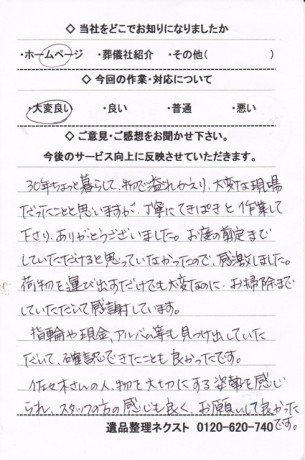 ◇ 当社をどこでお知りになりましたか
・ホームページ ・葬儀社紹介 ・その他( )
◇ 今回の作業・対応について
・大変良い ・良い ・普通 ・悪い
◇ ご意見・ご感想をお聞かせ下さい。
今後のサービス向上に反映させていただきます。
30年ちょっと暮らして、物で溢れかえり、大変な現場
だったことと思いますが、丁寧にてきぱきと作業して
下さり、ありがとうございました。お庭の剪定まで
していただけると思っていなかったので、感激しました。
荷物を運び出すだけでも大変なのに、お掃除まで
していただいて感謝しています。
指輪や現金、アルバム等も見つけ出していた
だいて、確認できたことも良かったです。
佐々木さんの人、物を大切にする姿勢を感じ
られ、スタッフの方の感じも良く、お願いして良かった
です。
遺品整理ネクスト 0120-620-740